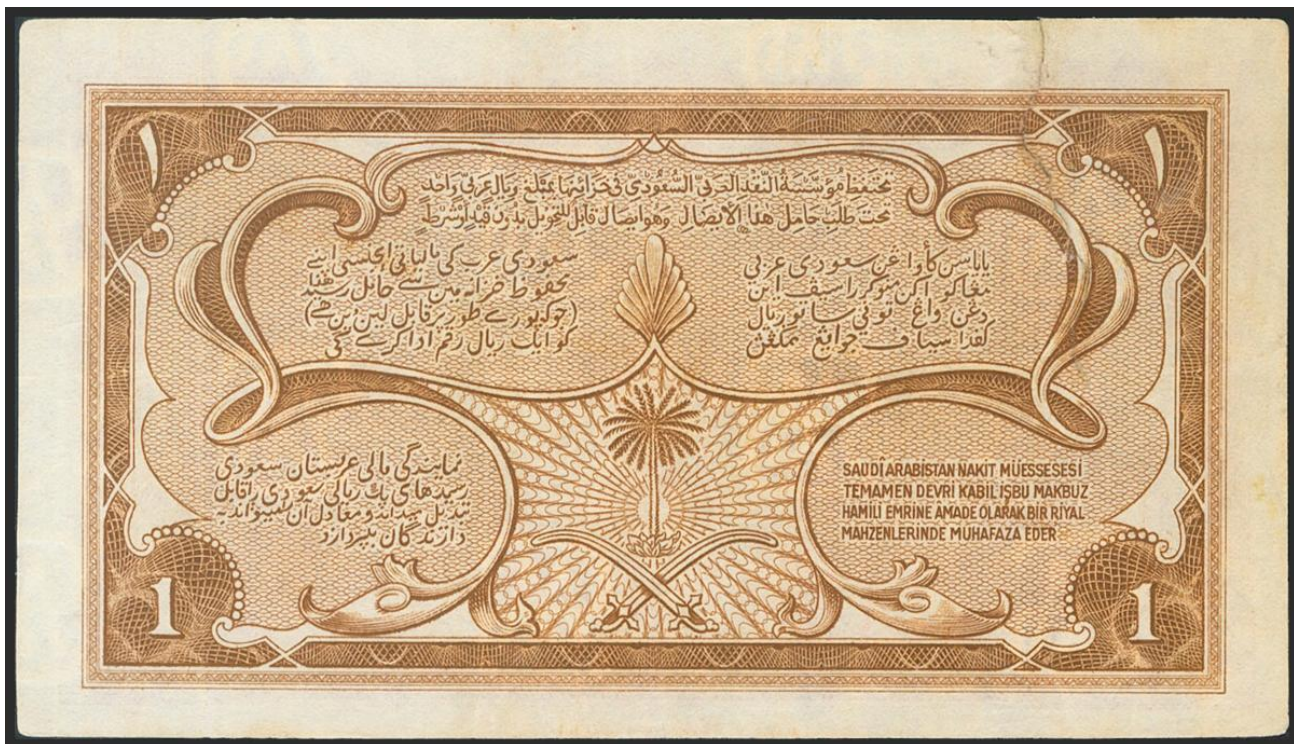 ١
١
تحتفظ مؤسسة النقد العربي السعودي في خزائنها بمبلغ ريال عربي واحد
تحت طلب حامل هذا الإيصال وهو إيصال قابل للتحويل بدون قيد أو شرط
سعودی عرب کی مالیاتی ایجنسی اپنے
محفوظ خزانہ میں سے حامل رسید ھذا
(جو کہ پورے طور پر قابل لین دین ھے)
کو ایک ریال رقم ادا کرے گی
سعودي عربي
اكن اين
دغن واغ توني ساتو ريال
كفدا سياف
نمایندگی مالی عربستان سعودی
رسیدهای یک ریالی سعودی را قابل
تبدیل میداند و معادل آن میتواند به
دارندگان بپردازد
SAUDİ ARABİSTAN NAKİT MÜESSESESİ
TEMAMEN DEVRİ KABİL İŞBU MAKBUZ
HAMİLİ EMRİNE AMADE OLARAK BİR RİYAL
MAHZENLERİNDE MUHAFAZA EDER
1
1